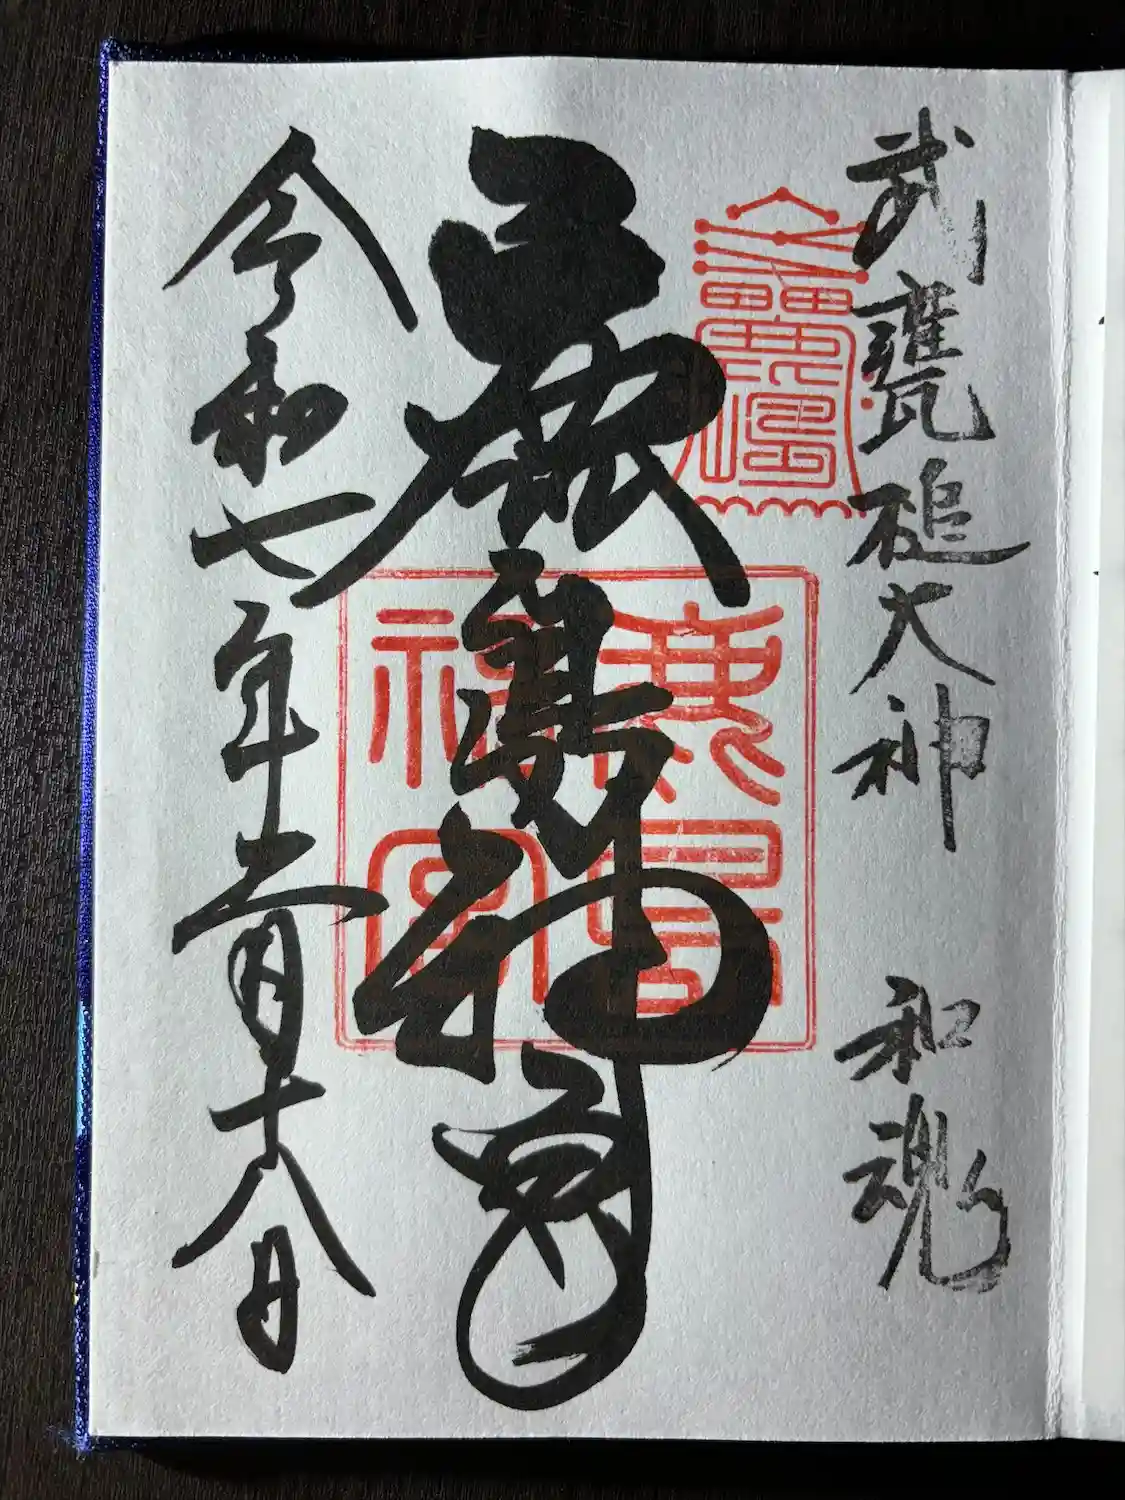 武甕槌大神 和魂
鹿島神宮
鹿島神宮
令和七年 月十八日